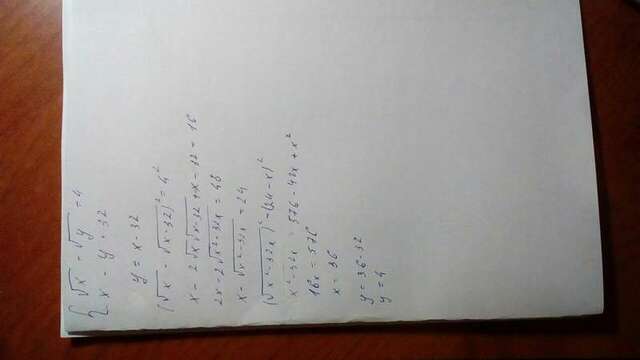 { √x - √y = 4
x - y = 32
y = x - 32
(√x - √x-32)² = 4²
x - 2√x√x-32 + x - 32 = 16
2x - 2√x²-32x = 48
x - √x²-32x = 24
(√x²-32x)² = (24-x)²
x² - 32x = 576 - 48x + x²
16x = 576
x = 36
y = 36-32
y = 4